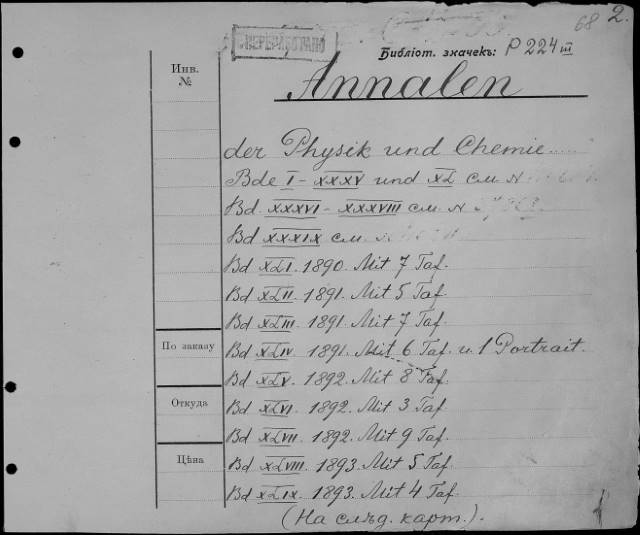 68 2.
ПЕРЕРАБОТАНО
Библіот. значекъ: P 224 III
Инв.
№
Annalen
der Physik und Chemie
Bde I - XXXV und XL см. N
Bd. XXXVI - XXXVIII см. N
Bd XXXIX см. N
Bd XLI. 1890. Mit 7 Taf.
Bd XLII. 1891. Mit 5 Taf.
Bd XLIII. 1891. Mit 7 Taf.
По заказу
Bd XLIV. 1891. Mit 6 Taf. u. 1 Portrait.
Bd XLV. 1892. Mit 8 Taf.
Откуда
Bd XLVI. 1892. Mit 3 Taf.
Bd XLVII. 1892. Mit 9 Taf.
Цѣна
Bd XLVIII. 1893. Mit 5 Taf.
Bd XLIX. 1893. Mit 4 Taf.
(На слѣд. карт.).